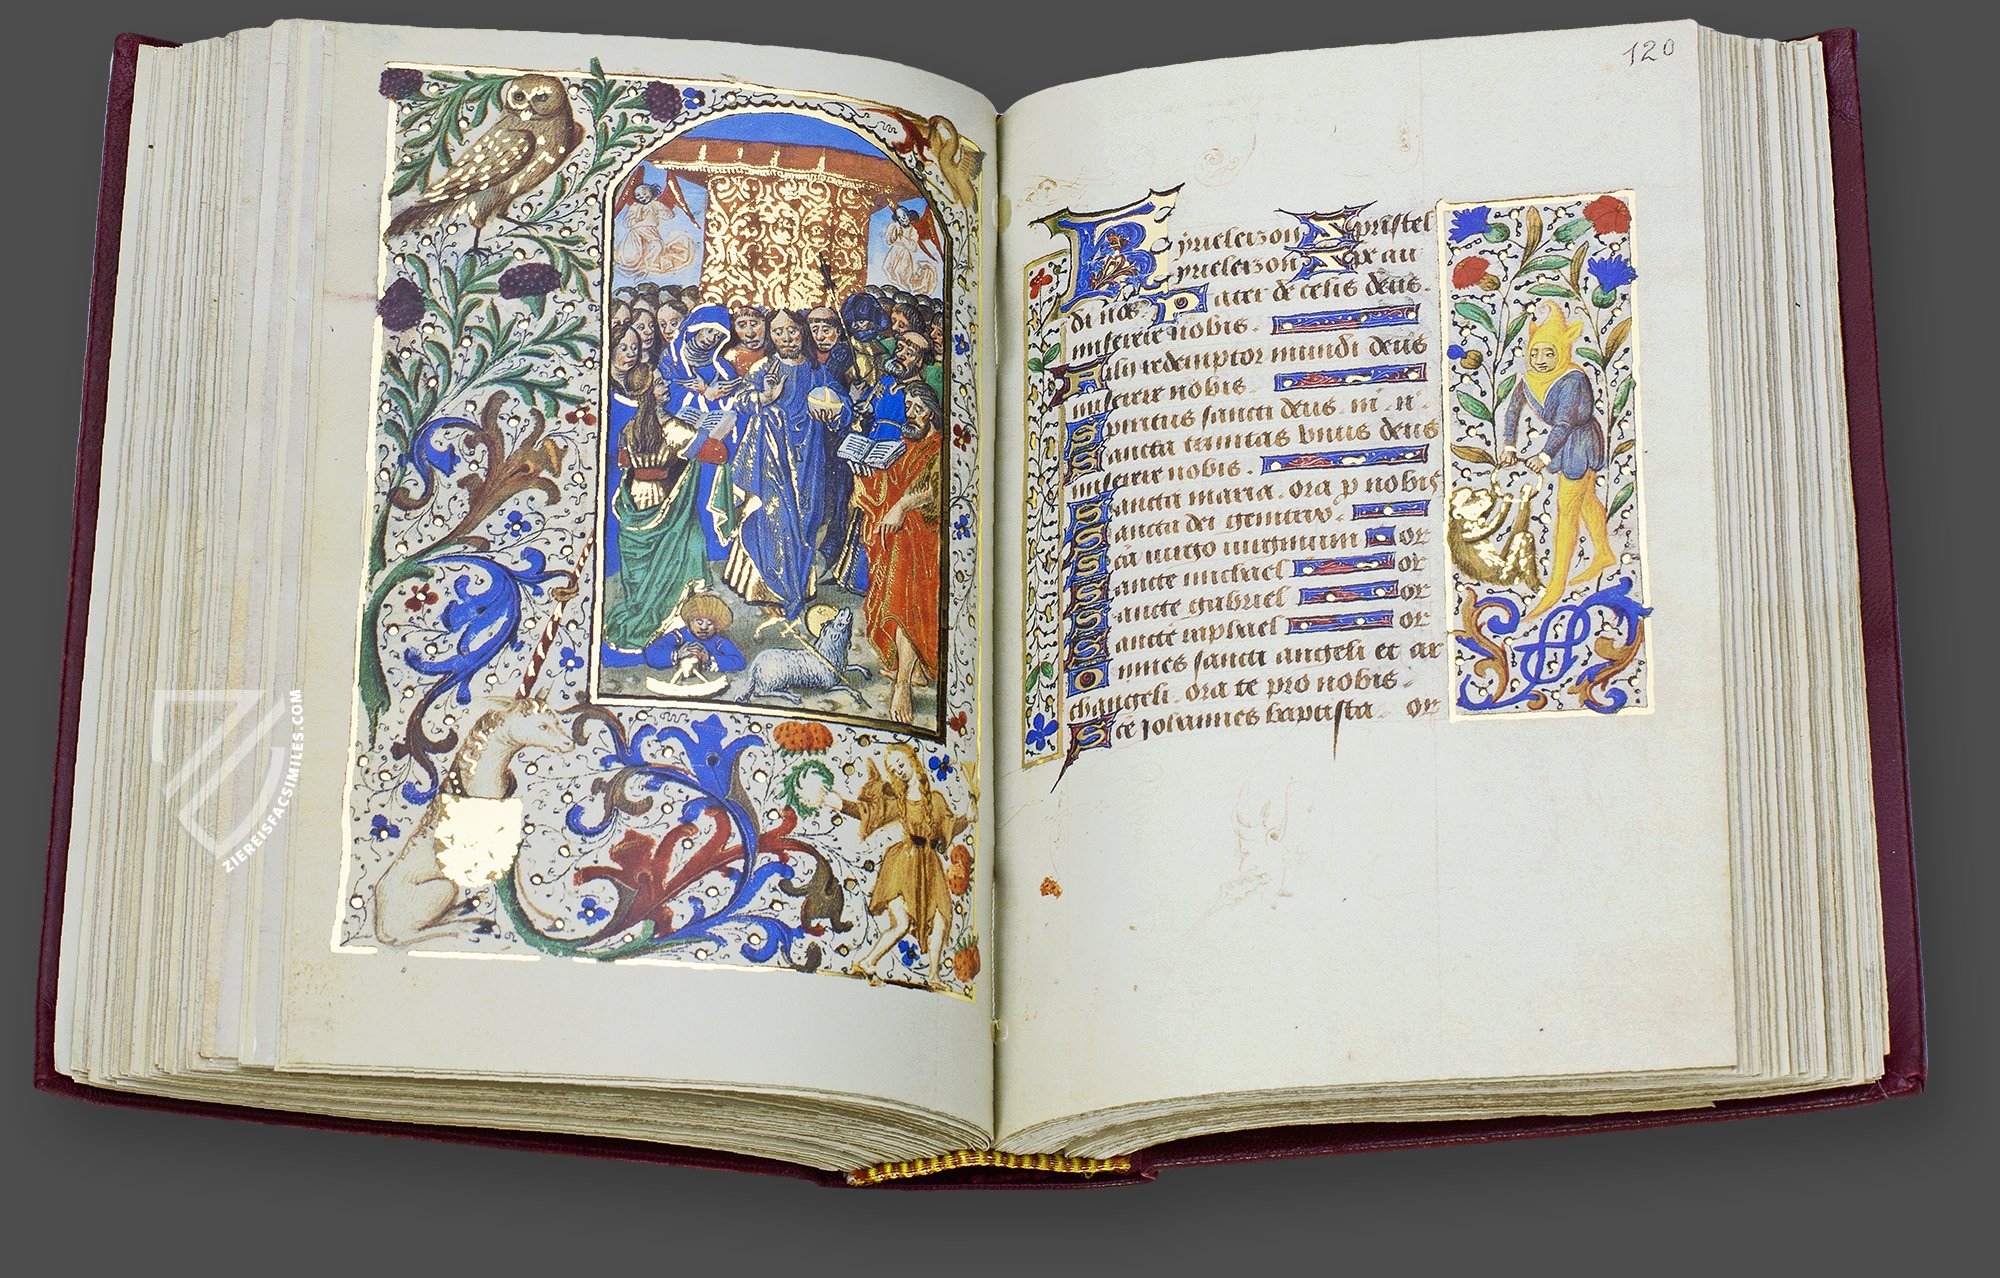 120
Kyrieleizon Xpristel
kyrieleizon Xpe au
di nos. Pater de celis deus.
miserere nobis.
Filij redemptor mundi deus
miserere nobis
Spiritus sancti deus. m. n.
Sancta trinitas vnus deus
miserere nobis.
Sancta maria. ora p nobis
Sancta dei genitrix. or
Sca virgo virginum or
Sancte michael or
Sancte gabriel or
Sancte raphael or
Omnes sancti angeli et ar
changeli. ora te pro nobis.
Ste Johannes baptista. or
ZIEREISFACSIMILES.COM